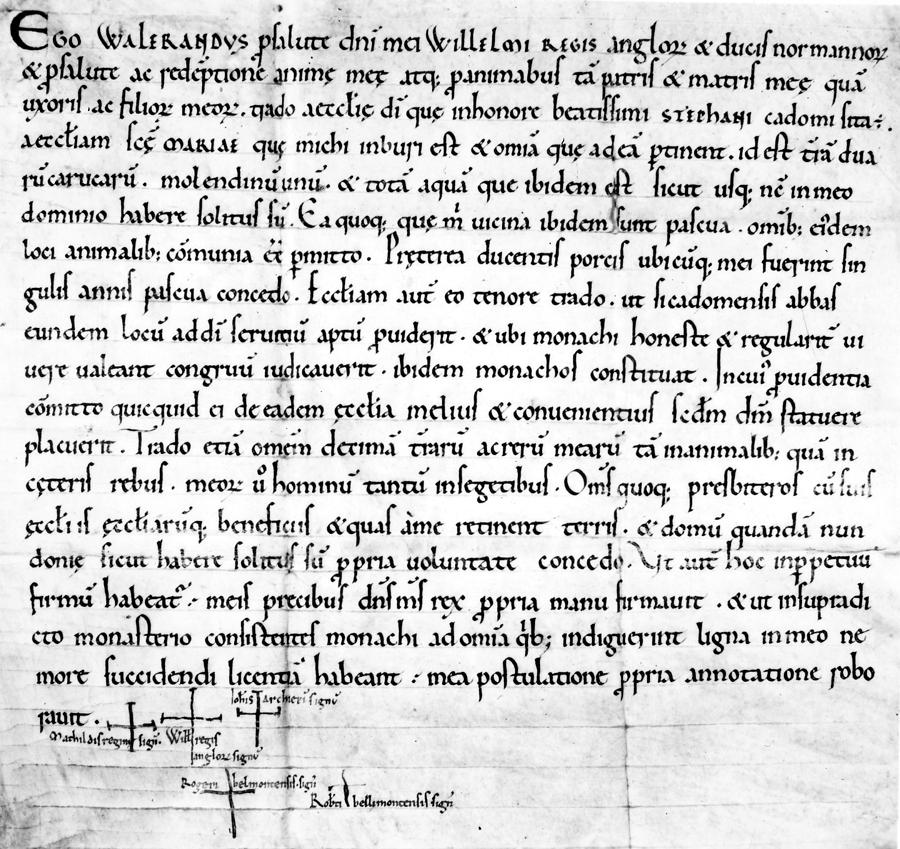 EGO WALERANDVS p salute dnĩ mei Willelmi REGIS anglor & ducis normannor
& p salute ac redẽptione animę męę atq; p animabus tã patris & matris męę quã
uxoris. ac filior meor. trado aecclię dĩ quę in honore beatissimi STEPHANI cadomi sita ÷.
aeccłiam scę̃ MARIAE quę michi in buri est & om̃ia quę ad eã ptinent. id est tr̃ã dua
rũ carucarũ. molendinũ unũ. & totã aquã que ibidem est sicut usq; nc̃ in meo
dominio habere solitus sũ. Ea quoq; quę m̃ uicina ibidem sunt pascua. omĩb; eĩdem
loci animalib; cõmunia eẽ pmitto. Pręterea ducentis porcis ubicũq; mei fuerint sin
gulis annis pascua concedo. Eccłiam aut̃ eo tenore trado. ut si cadomensis abbas
eundem locũ ad dĩ seruitiũ aptũ puiderit. & ubi monachi honeste & regularit̃ ui
uere ualeant congruũ iudicauerit. ibidem monachos constituat. In cui' puidentia
cõmitto quicquid ei de eadem ęcclia melius & conuenientius scdm̃ dm̃ statuere
placuerit. Trado etiã omẽm decimã tr̃arũ ac rerũ mearũ tã in animalib; quã in
cęteris rebus. meor ũ hominũ tantũ in segetibus. Om̃s quoq; presbiteros cũ suis
ęccliis ęccliarũq; beneficiis & quas a me retinent terris. & domũ quandã nun
donię sicut habere solitus sũ ppria uoluntate concedo. Vt aut̃ hoc in ppetuũ
firmũ habeat̃ ∙ meis precibus dñs m̃s rex ppria manu firmauit. & ut in supradi
cto monasterio consistentes monachi ad om̃ia q̃b; indiguerint ligna in meo ne
more succidendi licentiã habeant ∙ mea postulatione ppria annotatione robo
rauit. Ioh̃is Archieri signũ
Mathildis reginę sign̄. Willi regis
anglor signũ
Rogeri belmontensis. sign̄
Rob̃ti bellimontensis sign̄